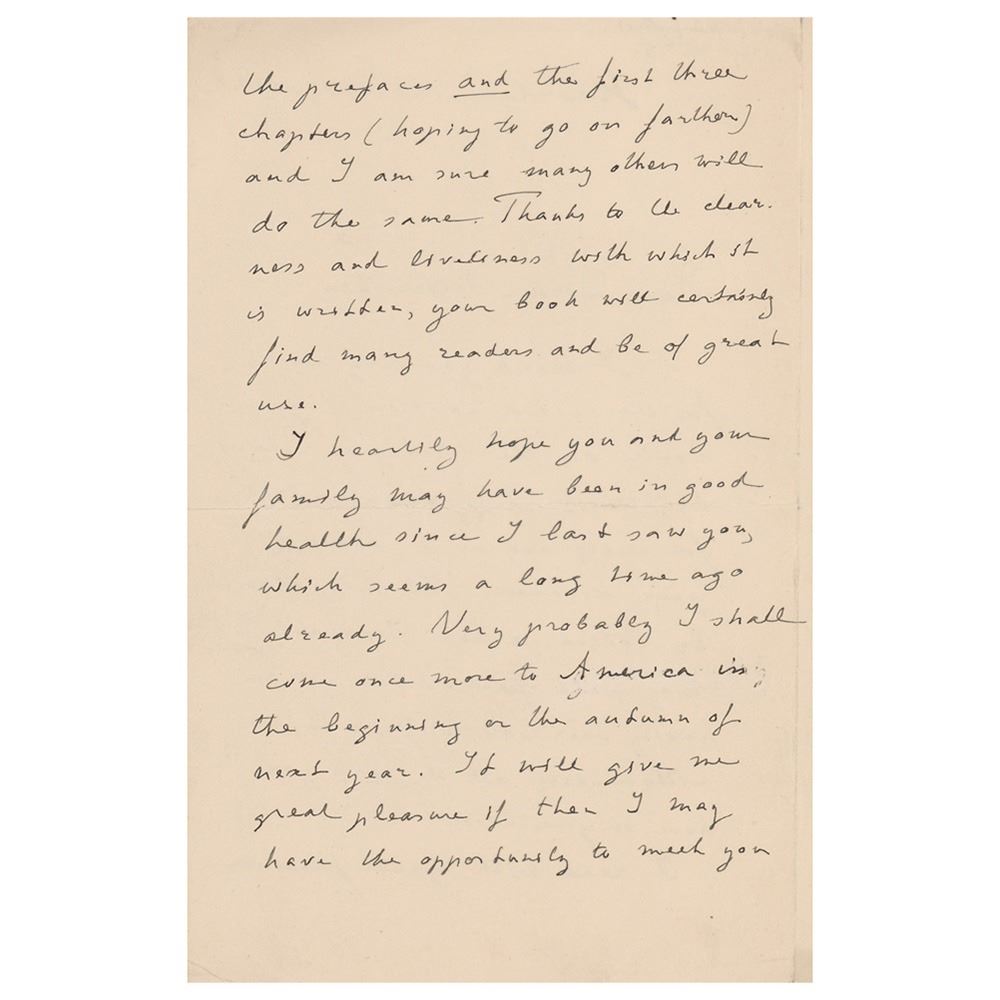 the prefaces and the first three
chapters (hoping to go on farther)
and I am sure many others will
do the same. Thanks to the clear-
ness and liveliness with which it
is written, your book will certainly
find many readers and be of great
use.
I heartily hope you and your
family may have been in good
health since I last saw you,
which seems a long time ago
already. Very probably I shall
come once more to America in
the beginning or the autumn of
next year. It will give me
great pleasure if then I may
have the opportunity to meet you